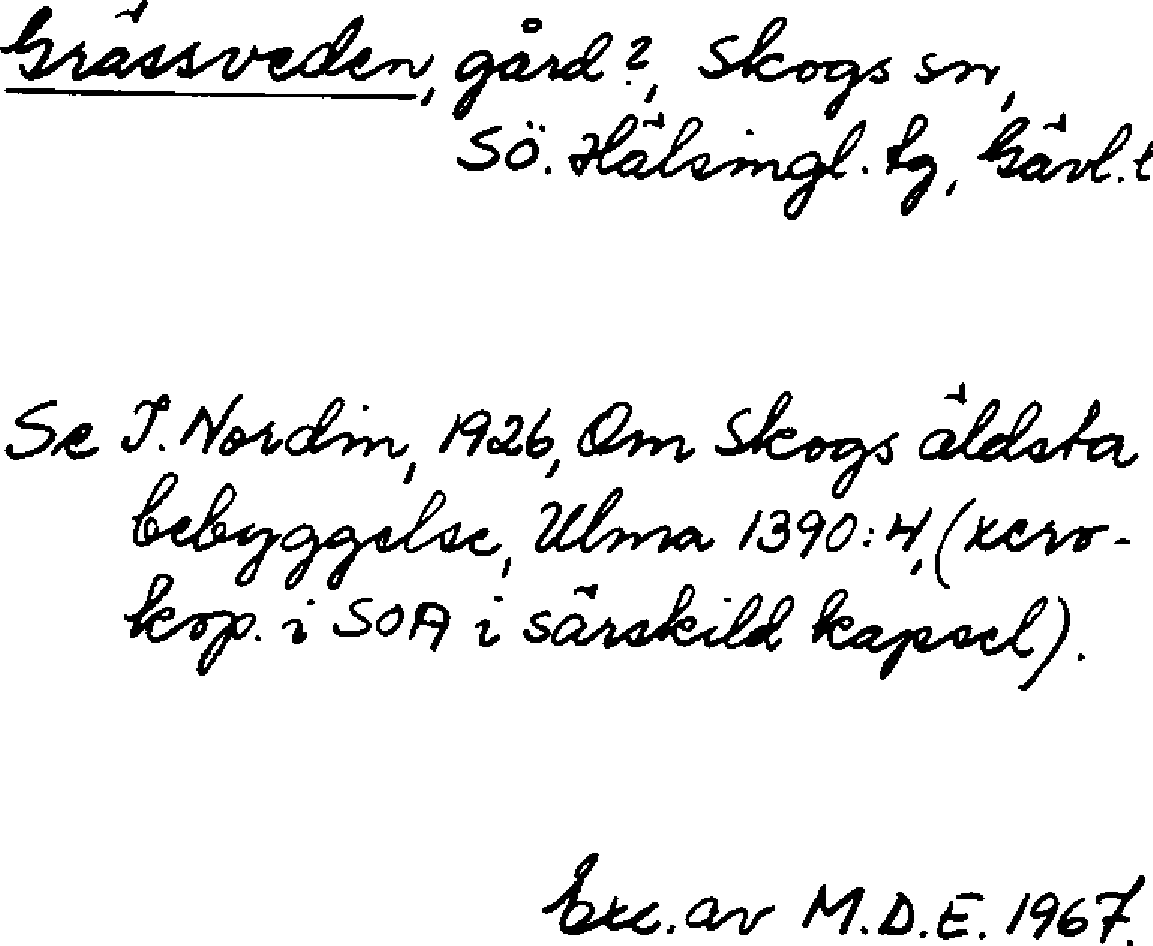 Grässveden, gård?, Skogs sn,
Sö. Hälsingl. tg, Gävl. l
Se I. Nordin, 1926, Om Skogs äldsta
bebyggelse, Ulma 1390:4, (xero-
kop. i SOA i särskild kapsel).
Exc. av M.D.E. 1967.